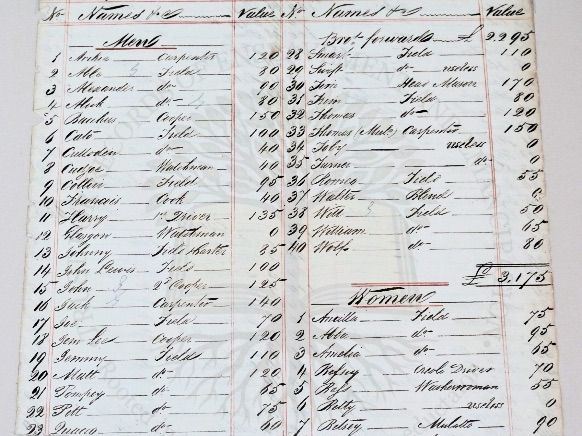 No Names &c Value
Men
1 Archer Carpenter 120
2 Abba Field 80
3 Alexander do 90
4 Alick do 80
5 Bacchus Cooper 150
6 Cato Field 100
7 Culloden do 40
8 Cudjoe Watchman 40
9 Collin Field 95
10 Francis Cook 40
11 Harry 1st Driver 135
12 Glasgow Watchman 0
13 Johnny Field Carter 85
14 John Field 100
15 John 2d Cooper 125
16 Jack Carpenter 140
17 Joe Field 70
18 Jem Cooper 120
19 Jammy Field 110
20 Matt do 120
21 Pompey do 65
22 Pitt do 75
23 Quaco do 60
No Names &c Value
Brot forward £ 2295
28 Smart Field 110
29 Swift do useless 0
30 Tom Head Mason 170
31 Tim Field 80
32 Thomas do 120
33 Thomas (Mulo) Carpenter 150
34 Toby useless 0
35 Turner do 0
36 Romeo Field 55
37 Walter Blind 0
38 Will Field 50
39 William do 65
40 Wolf do 80
£ 3,175
Women
1 Ancilla Field 75
2 Abba do 95
3 Amelia do 65
4 Creole Driver 70
5 Bess Washerwoman 55
6 Betty useless 0
7 Betsey Mulatto 90